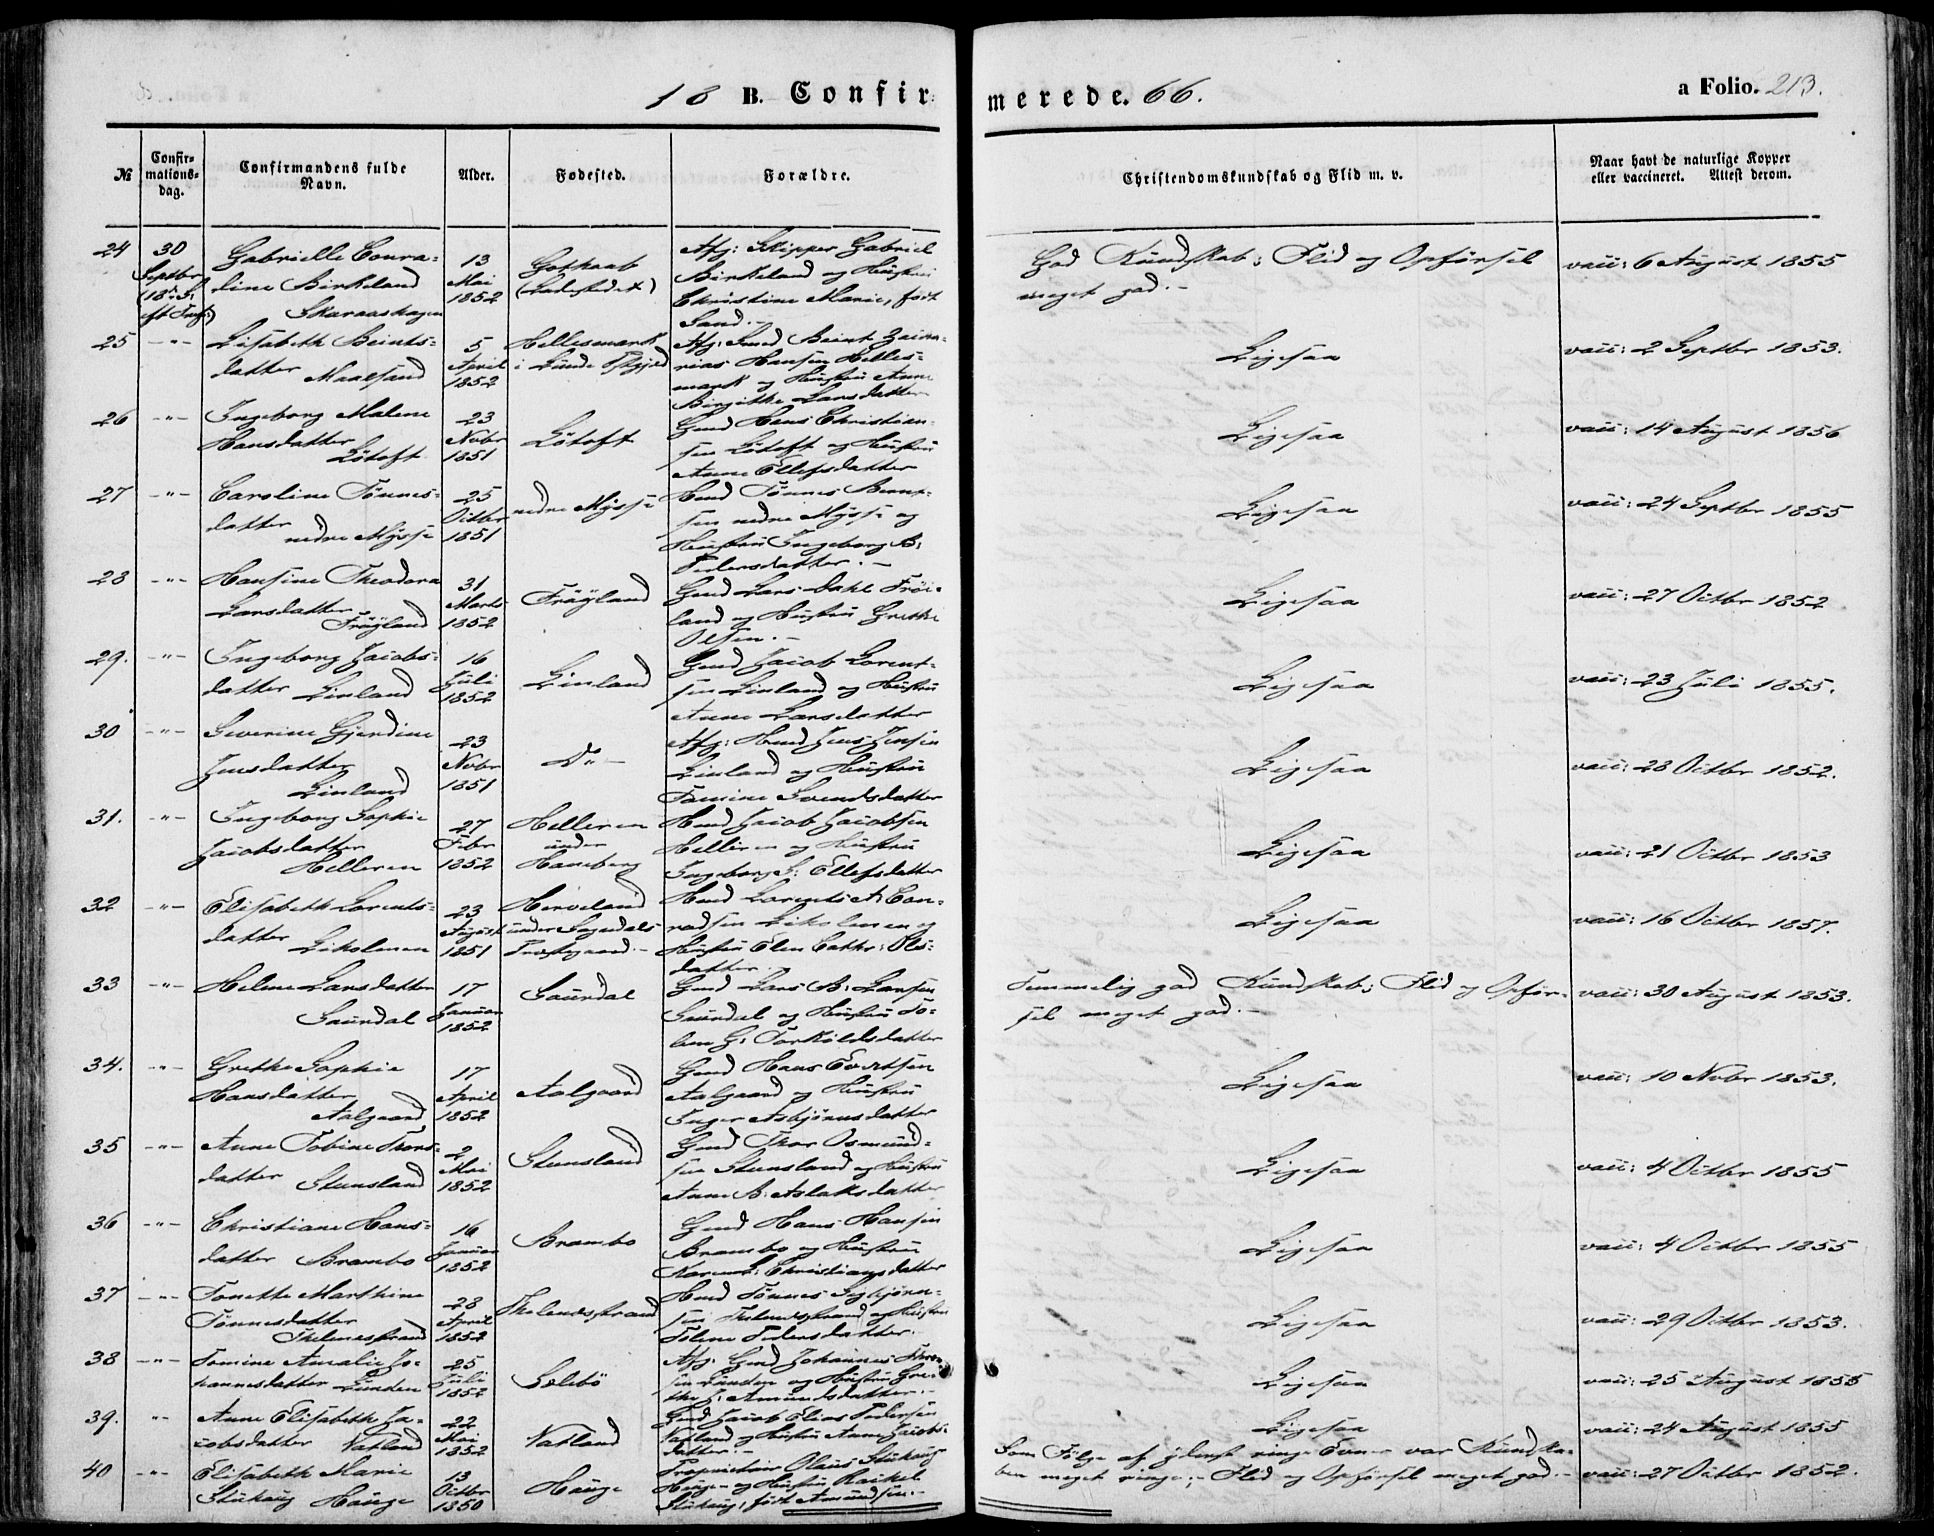 18 B. Confirmerede. 66. a Folio. 213.
№ Confirmationsdag. Confirmandens fulde Navn. Alder. Fødested. Forældre. Christendomskundskab og Flid m. v. Naar havt de naturlige Kopper eller vaccineret. Attest derom.
24 30 Septbr (18de S. eft Trefs:) Gabrielle Conradine Birkeland Skaraashagen 13 Mai 1852 Gotkaab (Ladestedet) Afg: Skipper Gabriel Birkeland og Hustru Christine Marie, født Sand. - God Kundskab; Flid og Opførsel meget god. - vacc: 6 August 1855
25 -"- Lisabeth Beintsdatter Maalsand 5 April 1852 Hellesmark i Lunde Afg: Smed Beint Hansen Hellesmark og Hustru Anne Birgitte Larsdatter Ligesaa vacc: 2 Septbr 1853.
26 -"- Ingeborg Malene Hansdatter Løtoft 23 Novbr 1851 Løtoft Gmd Hans Christiansen Løtoft og Hustru Anne Ellefsdatter Ligesaa vacc: 14 August 1856
27 -"- Caroline Tønnesdatter nedre Mysse 25 Octbr 1851 nedre Mysse Hmd Tønnes Berntsen nedre Mysse og Hustru Ingeborg B: Pedersdatter. - Ligesaa vacc: 24 Septbr 1855
28 -"- Hansine Theodora Larsdatter Frøyland 31 Marts 1852 Frøyland Gmd Lars Dahl Frøiland og Hustru Grethe Olsen. - Ligesaa vacc: 27 Octbr 1852
29. -"- Ingeborg Jacobsdatter Linland 16 Juli 1852 Linland Gmd Jacob Lorentsen Linland og Hustru Anne Larsdatter Ligesaa vacc: 23 Juli 1855.
30 -"- Severine Gjerdine Jensdatter Linland 23 Novbr 1851 Do - Afg: Hmd Jens Jensen Linland og Hustru Tomine Svendsdatter Ligesaa vacc: 28 Octbr 1852.
31. -"- Ingeborg Sophie Jacobsdatter Helleren 27 Febr 1852 Helleren under Haneberg Hmd Jacob Jacobsen Helleren og Hustru Ingeborg S: Ellefsdatter Ligesaa vacc: 21 Octbr 1853
32 -"- Elisabeth Lorentsdatter Likolmen 23 August 1851 Herveland under Sogndals Præstegaard. - Hmd Lorents A: Conradsen Likolmen og Hustru Elen Cathr: Olsdatter. Ligesaa vacc: 16 Octbr 1857.
33 -"- Helene Larsdatter Saurdal 17 Januar 1852 Saurdal Gmd Lars B: Larsen Saurdal og Hustru Tolene G: Torkildsdatter Temmelig god Kundskab; Flid og Opførsel meget god. - vacc: 30 August 1853.
34. -"- Grethe Sophie Hansdatter Aalgaard 17 April 1852 Aalgaard Gmd Hans Evertsen Aalgaard og Hustru Inger Asbjørnsdatter Ligesaa vacc: 10 Novbr 1853.
35 -"- Anne Tobine Thorsdatter Stensland 2 Mai 1852 Stensland Gmd Thor Osmundsen Stensland og Hustru Anne B: Aslaksdatter Ligesaa vacc: 4 Octbr 1855
36 -"- Christiane Hansdatter Brambo 16 Januar 1852 Brambo Gmd Hans Hansen Brambo og Hustru Karen L: Christiansdatter Ligesaa vacc: 4 Octbr 1855
37 -"- Tonette Marthine Tønnesdatter Thelenesstrand 28 April 1852 Thelenesstrand Hmd Tønnes Sigbjørnsen Thelenesstrand og Hustru Tolene Pedersdatter. Ligesaa vacc: 29 Octbr 1853.
38 -"- Tomine Amalie Johannesdatter Lunden 25 Juli 1852 Solebø Afg: Gmd Johannes Lunden og Hustru Grethe J: Amundsdatter. - Ligesaa vacc: 25 August 1855
39. -"- Anne Elisabeth Jacobsdatter Natland 22 Mai 1852 Natland Gmd Jacob Elias Pedersen Natland og Hustru Anne Jacobsdatter. - Ligesaa vacc: 24 August 1855
40 -"- Elisabeth Marie Stuhaug Hauge 13 Octbr 1850 Hauge Proprietair Oleus Stuhaug Hauge og Hustru Rachel Stuhaug, født Amundsen. - Som Følge af yderst ringe Evner var Kundskaben meget ringe; - Flid og Opførsel meget god. - vacc: 27 Octbr 1852.